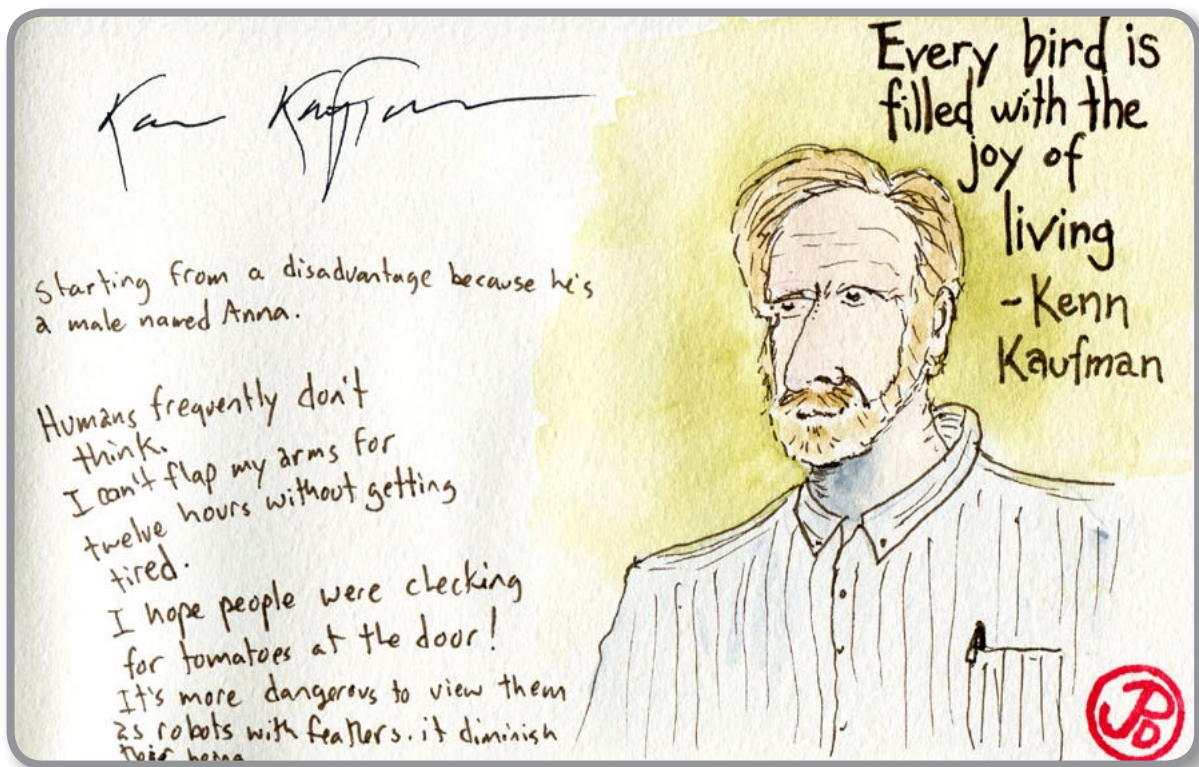 Kenn Kaufman
starting from a disadvantage because he's
a male named Anna.
Humans frequently don't
think.
I can't flap my arms for
twelve hours without getting
tired.
I hope people were checking
for tomatoes at the door!
It's more dangerous to view them
as robots with feathers. it diminish
their being
Every bird is
filled with the
joy of
living
-Kenn
Kaufman
JPD